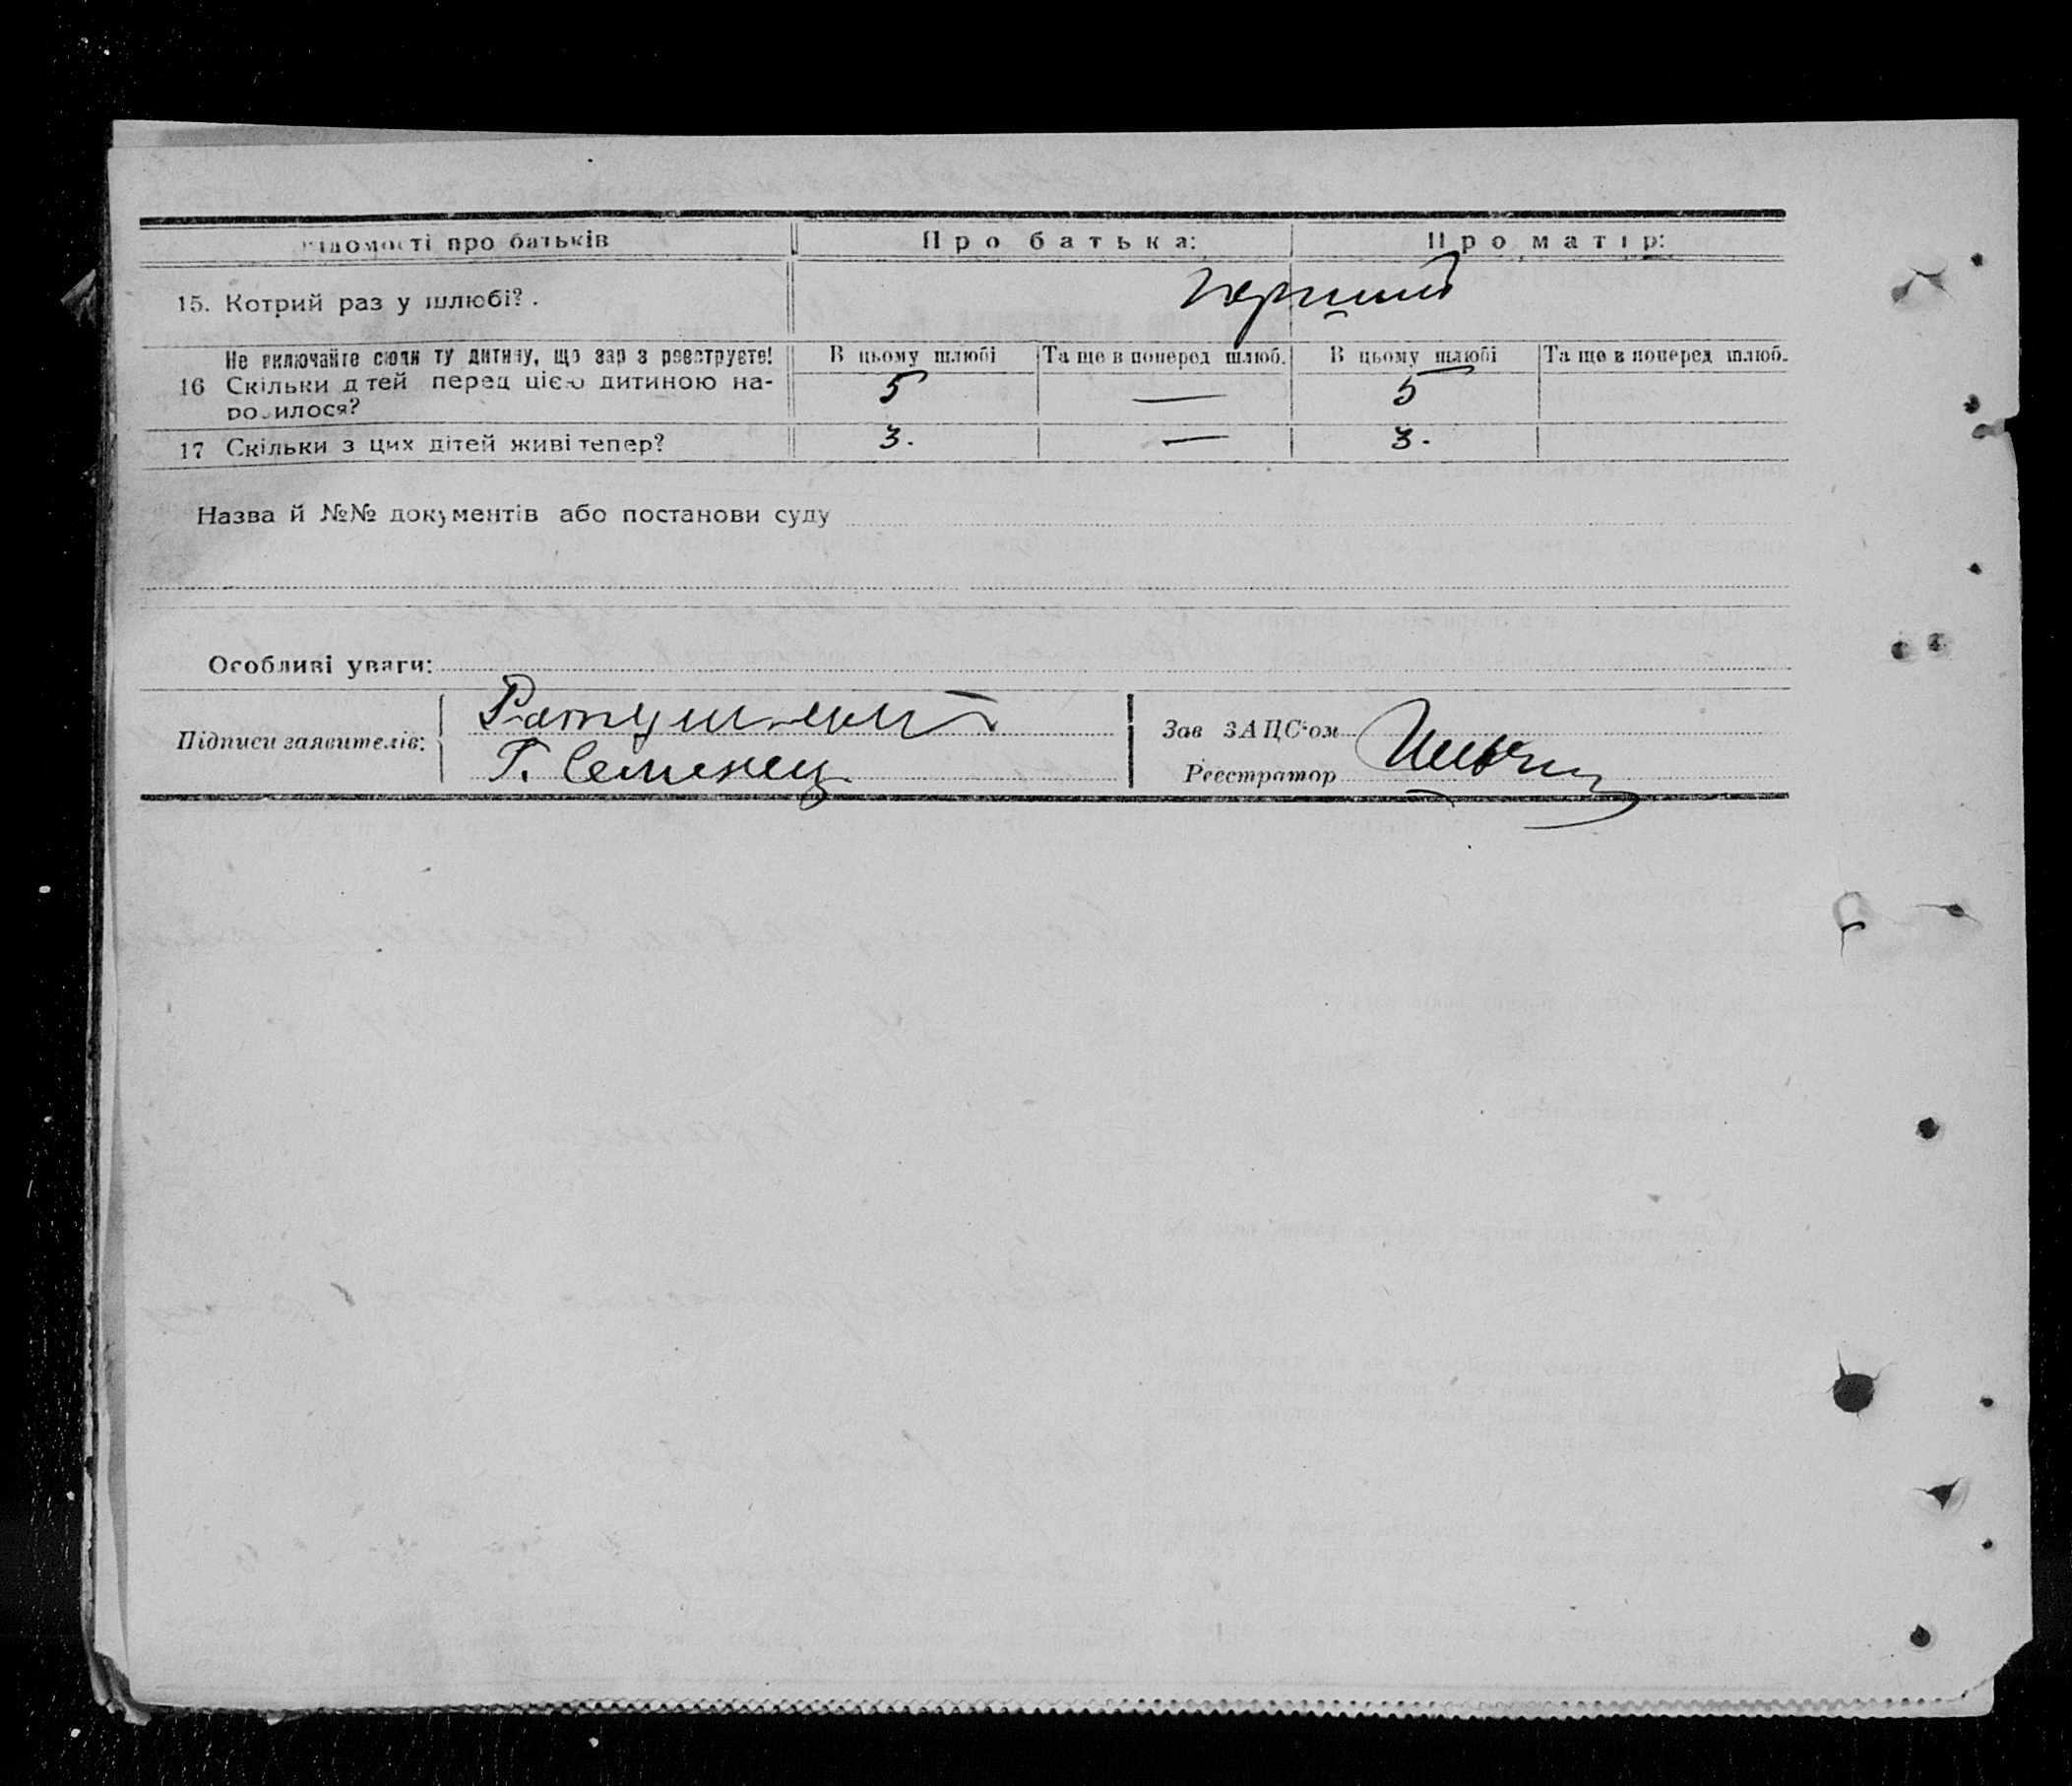 Відомості про батьків Про батька: Про матір:
15. Котрий раз у шлюбі? . перший
Не включайте сюди ту дитину, що зар з реєструєте! В цьому шлюбі Та ще в поперед шлюб. В цьому шлюбі Та ще в поперед шлюб.
16 Скільки дтей перед цією дитиною на- 5 — 5
родилося?
17 Скільки з цих дітей живі тепер? 3. — 3.
Назва й №№ документів або постанови суду
Особливі уваги:
Підписи заявителів: Ратушний
Г. Семенец
Зав ЗАЦС'ом
Реєстратор